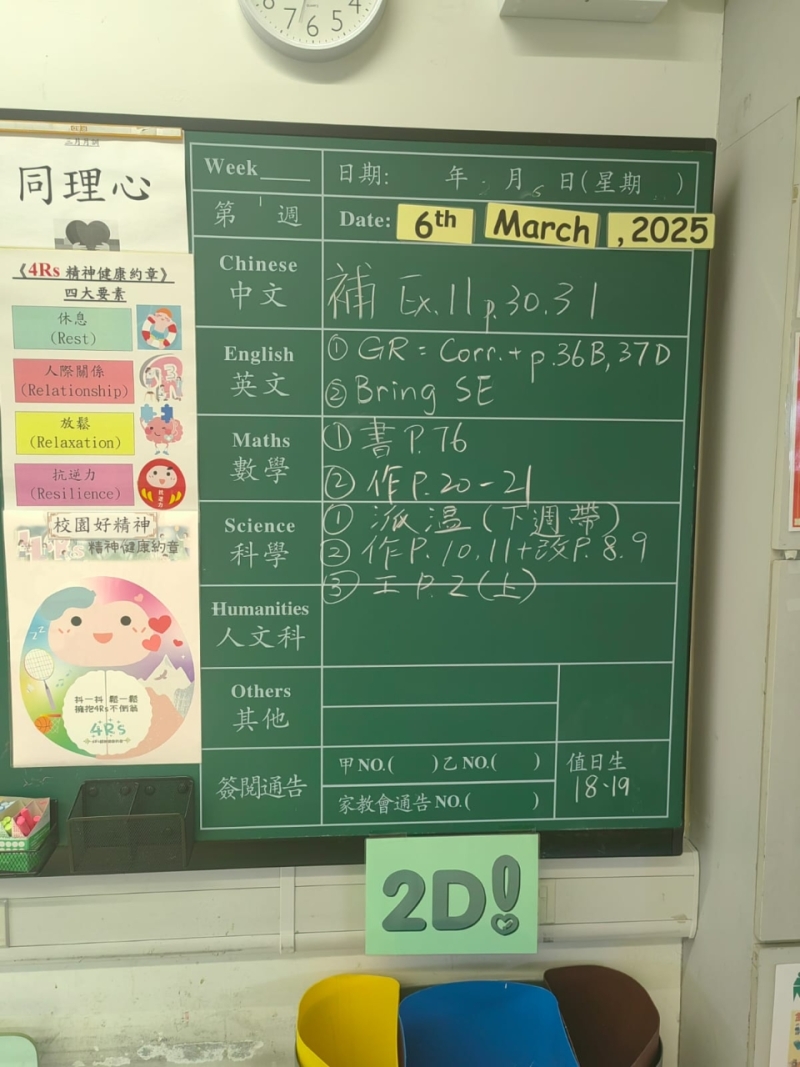 8 7 6 5 4
三月月訓
同理心
《4Rs 精神健康約章》
四大要素
休息
(Rest)
人際關係
(Relationship)
放鬆
(Relaxation)
抗逆力
(Resilience)
校園好精神
4Rs 精神健康約章
抖一抖 鬆一鬆
擁抱4Rs不倒翁
4Rs
Week____ 日期: 年 月 日(星期 )
第 1 週 Date: 6th March , 2025
Chinese
中文
補 Ex.11 p.30.31
English
英文
① GR = Corr. + p.36B, 37D
② Bring SE
Maths
數學
① 書 P.76
② 作 P.20-21
Science
科學
① 派溫(下週帶)
② 作P.10.11+改P.8.9
③ 工 P.2(上)
Humanities
人文科
Others
其他
簽閱通告
甲NO.( )乙NO.( )
家教會通告NO.( )
值日生
18、19
2D!